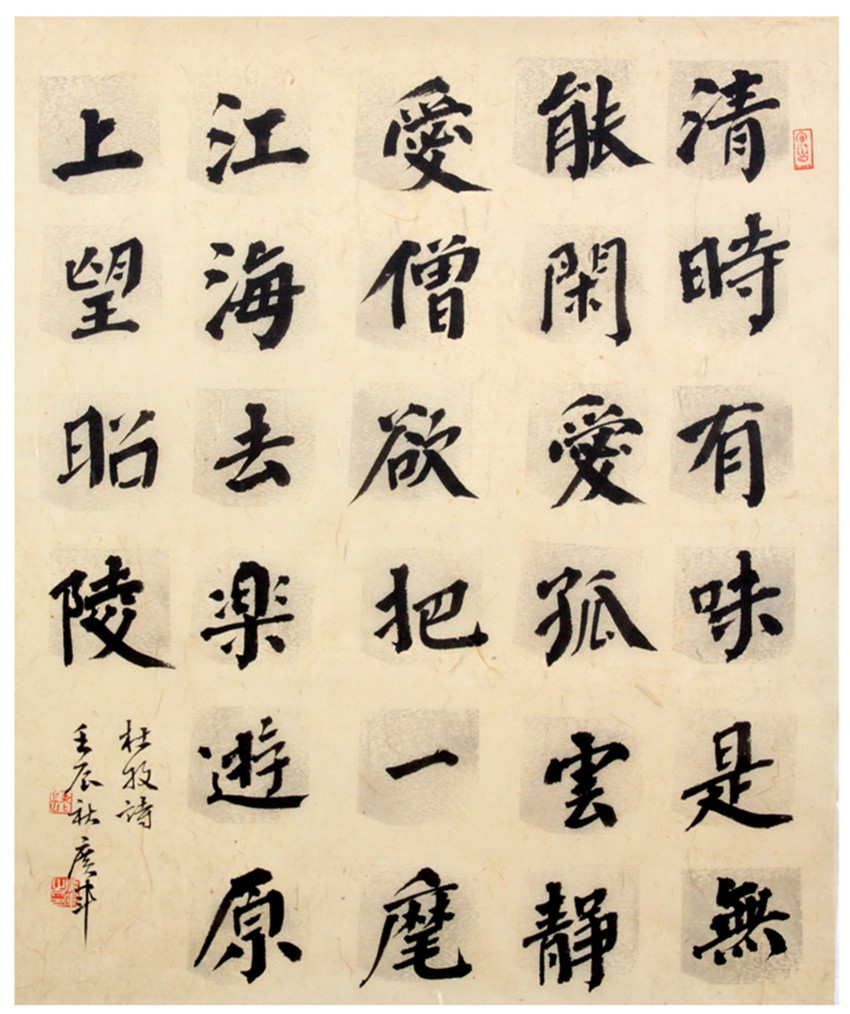 清時有味是無
能閑愛孤雲靜
愛僧欲把一麾
江海去楽遊原
上望昭陵
杜牧詩
壬辰秋 廣斗